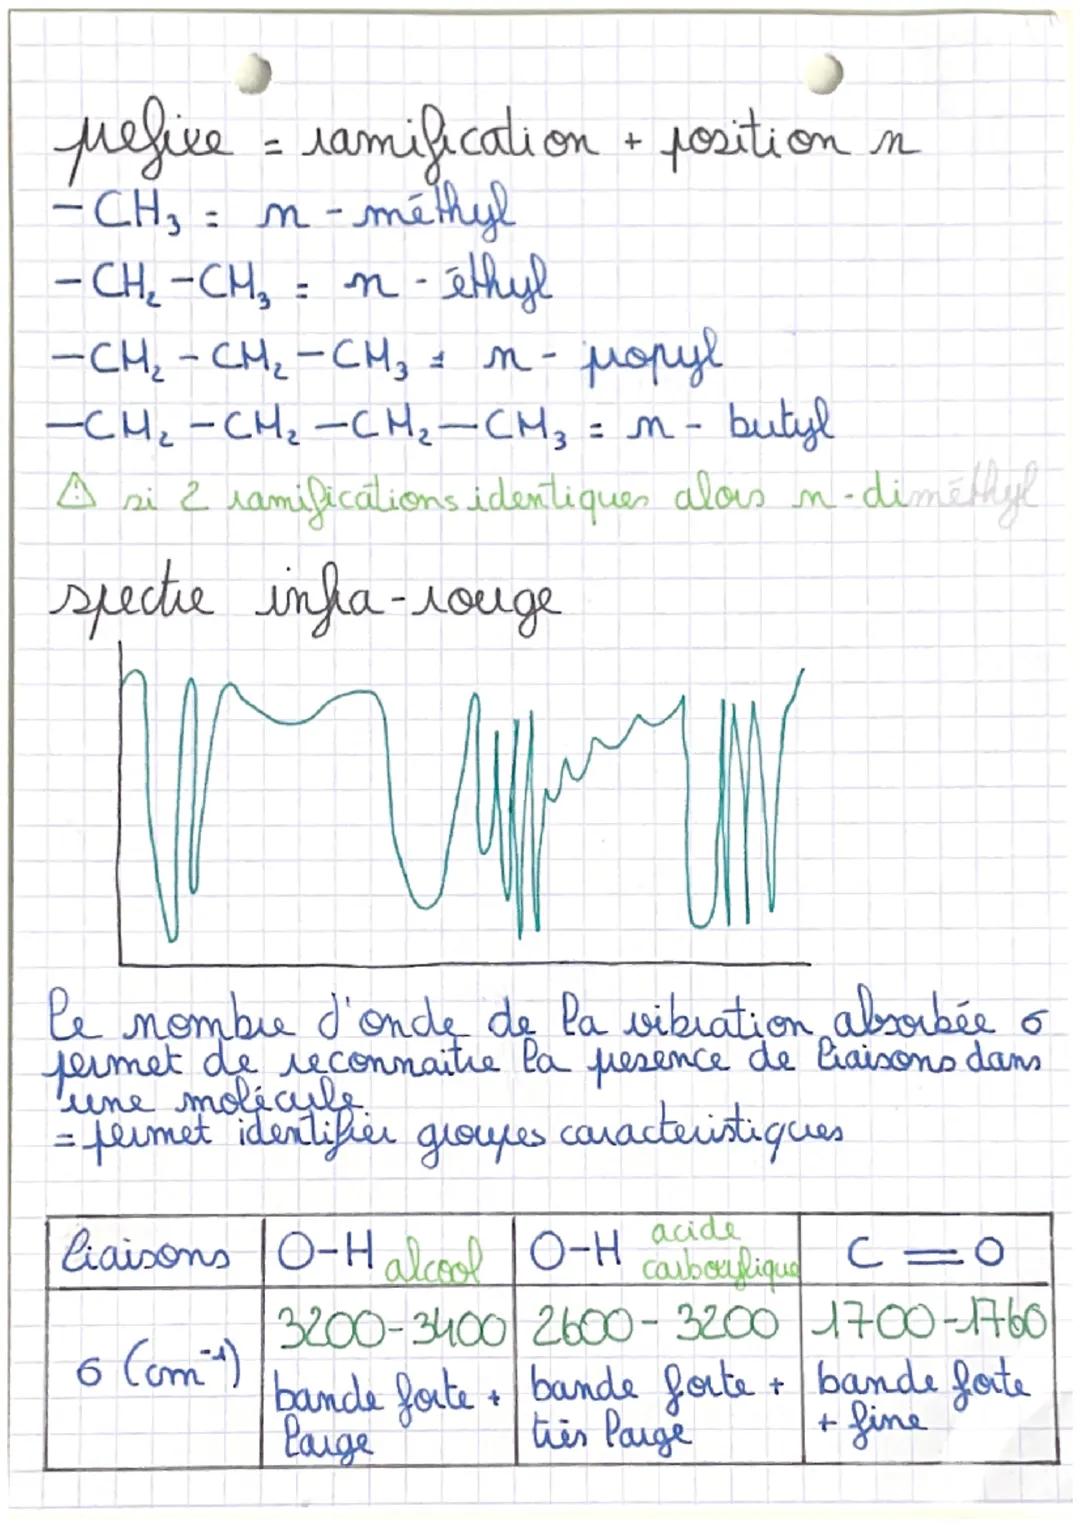 prefixe = ramification + position n
-CH₃ = n - méthyl
-CH₂-CH₃ = n - éthyl
-CH₂-CH₂-CH₃ = n - propyl
-CH₂-CH₂-CH₂-CH₃ = n - butyl
⚠ si 2 ramifications identiques alors n-diméthyl
spectre infra-rouge
le nombre d'onde de la vibration absorbée σ
permet de reconnaitre la presence de liaisons dans
une molécule
= permet identifier groupes caracteristiques
liaisons O-H alcool O-H acide carboxylique C=O
σ (cm⁻¹) 3200-3400 2600-3200 1700-1760
bande forte + bande forte + bande forte
large très large + fine